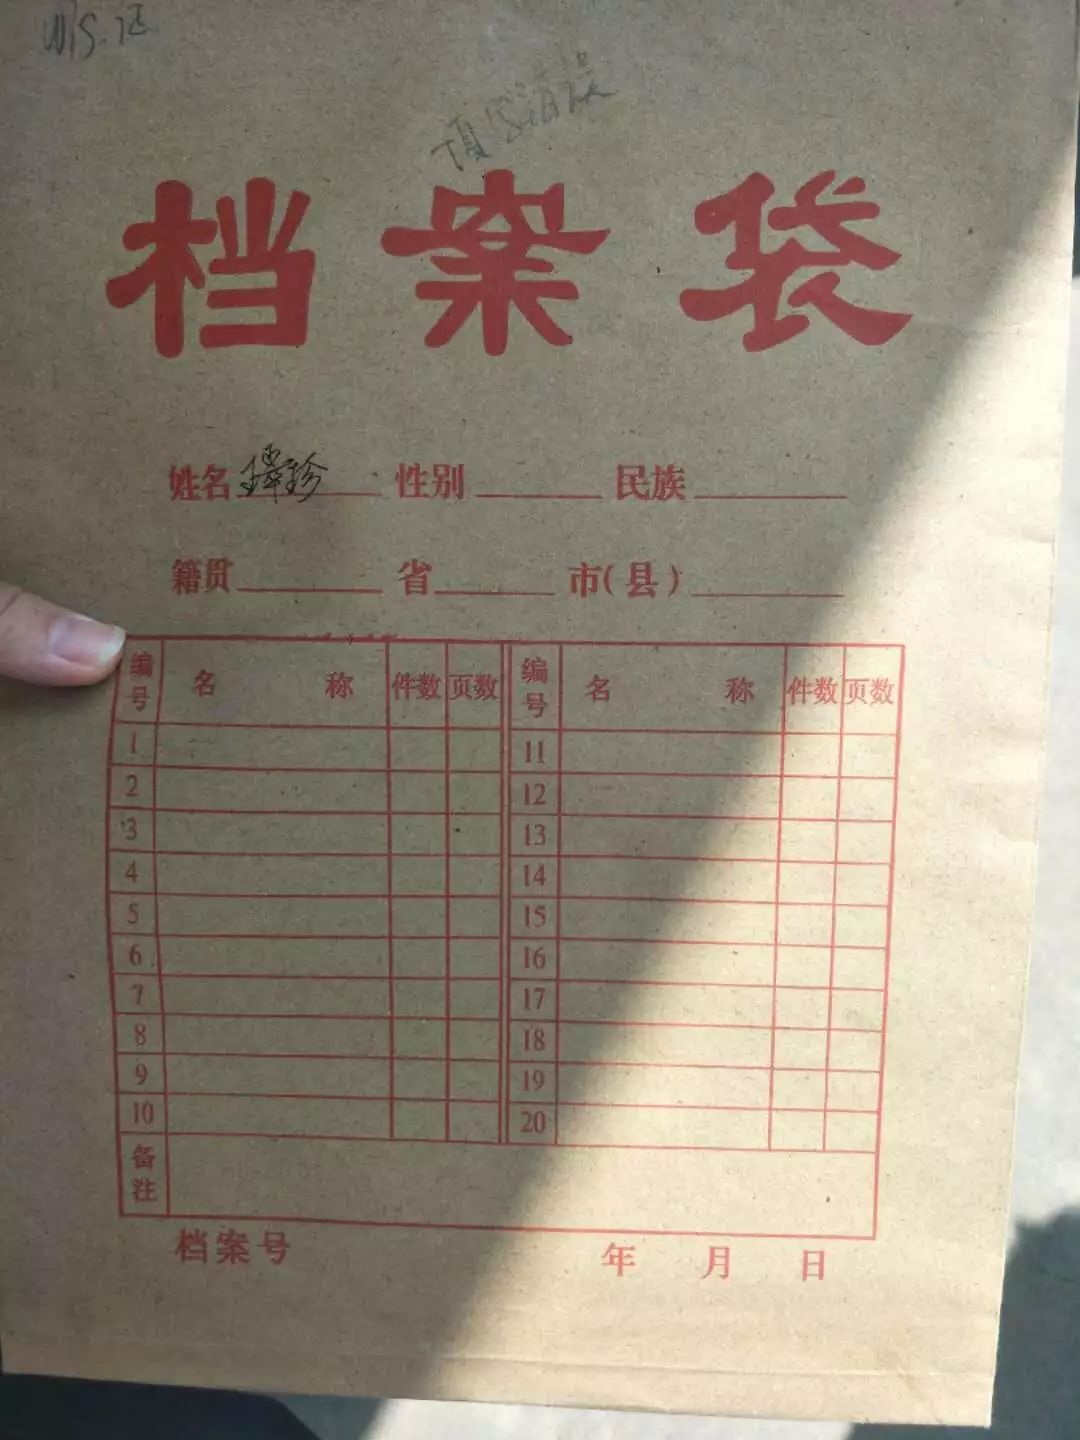 档案袋
姓名 性别 民族
籍贯 省 市(县)
编号 名称 件数 页数 编号 名称 件数 页数
1 11
2 12
3 13
4 14
5 15
6 16
7 17
8 18
9 19
10 20
备注
档案号 年 月 日